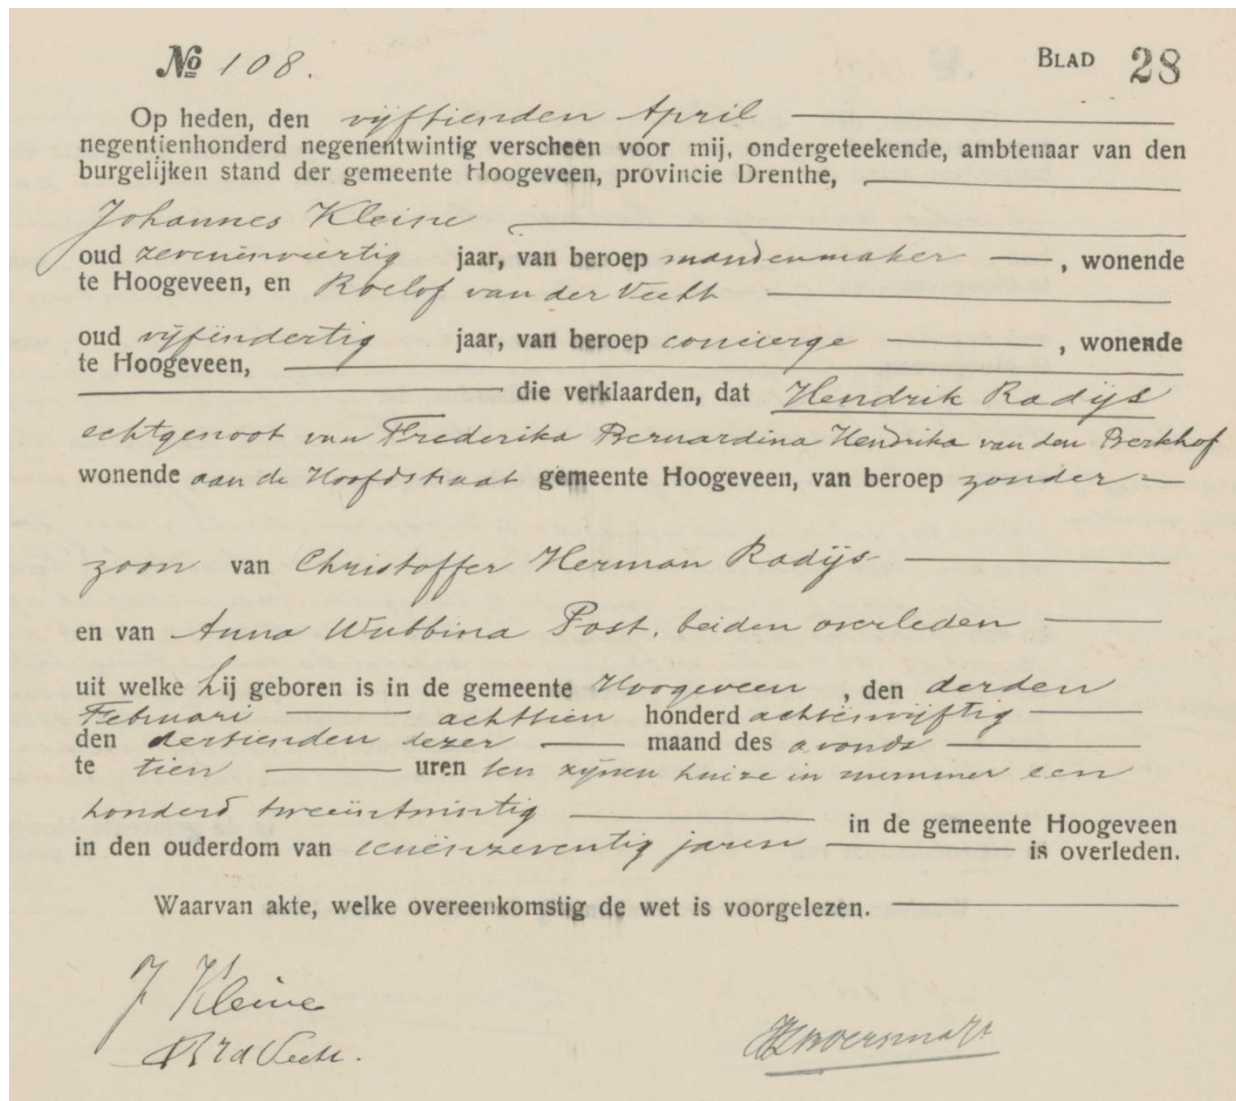 № 108.
BLAD 28
Op heden, den vijftienden April
negentienhonderd negenentwintig verscheen voor mij, ondergeteekende, ambtenaar van den
burgelijken stand der gemeente Hoogeveen, provincie Drenthe,
Johannes Kleine
oud zevenënveertig jaar, van beroep mandenmaker, wonende
te Hoogeveen, en Roelof van der Vecht
oud vijfëndertig jaar, van beroep concierge, wonende
te Hoogeveen,
die verklaarden, dat Hendrik Radijs
echtgenoot van Frederika Bernardina Hendrika van den Berkhof
wonende aan de Hoofdstraat gemeente Hoogeveen, van beroep zonder
zoon van Christoffer Herman Radijs
en van Anna Wubbina Post, beiden overleden
uit welke hij geboren is in de gemeente Hoogeveen, den derden
Februari achttien honderd achtenvijftig
den dertienden dezer maand des avonds
te tien uren ten zijnen huize in nummer een
honderd tweeëntwintig in de gemeente Hoogeveen
in den ouderdom van eenënzeventig jaren is overleden.
Waarvan akte, welke overeenkomstig de wet is voorgelezen.
J Kleine
R v d Vecht.